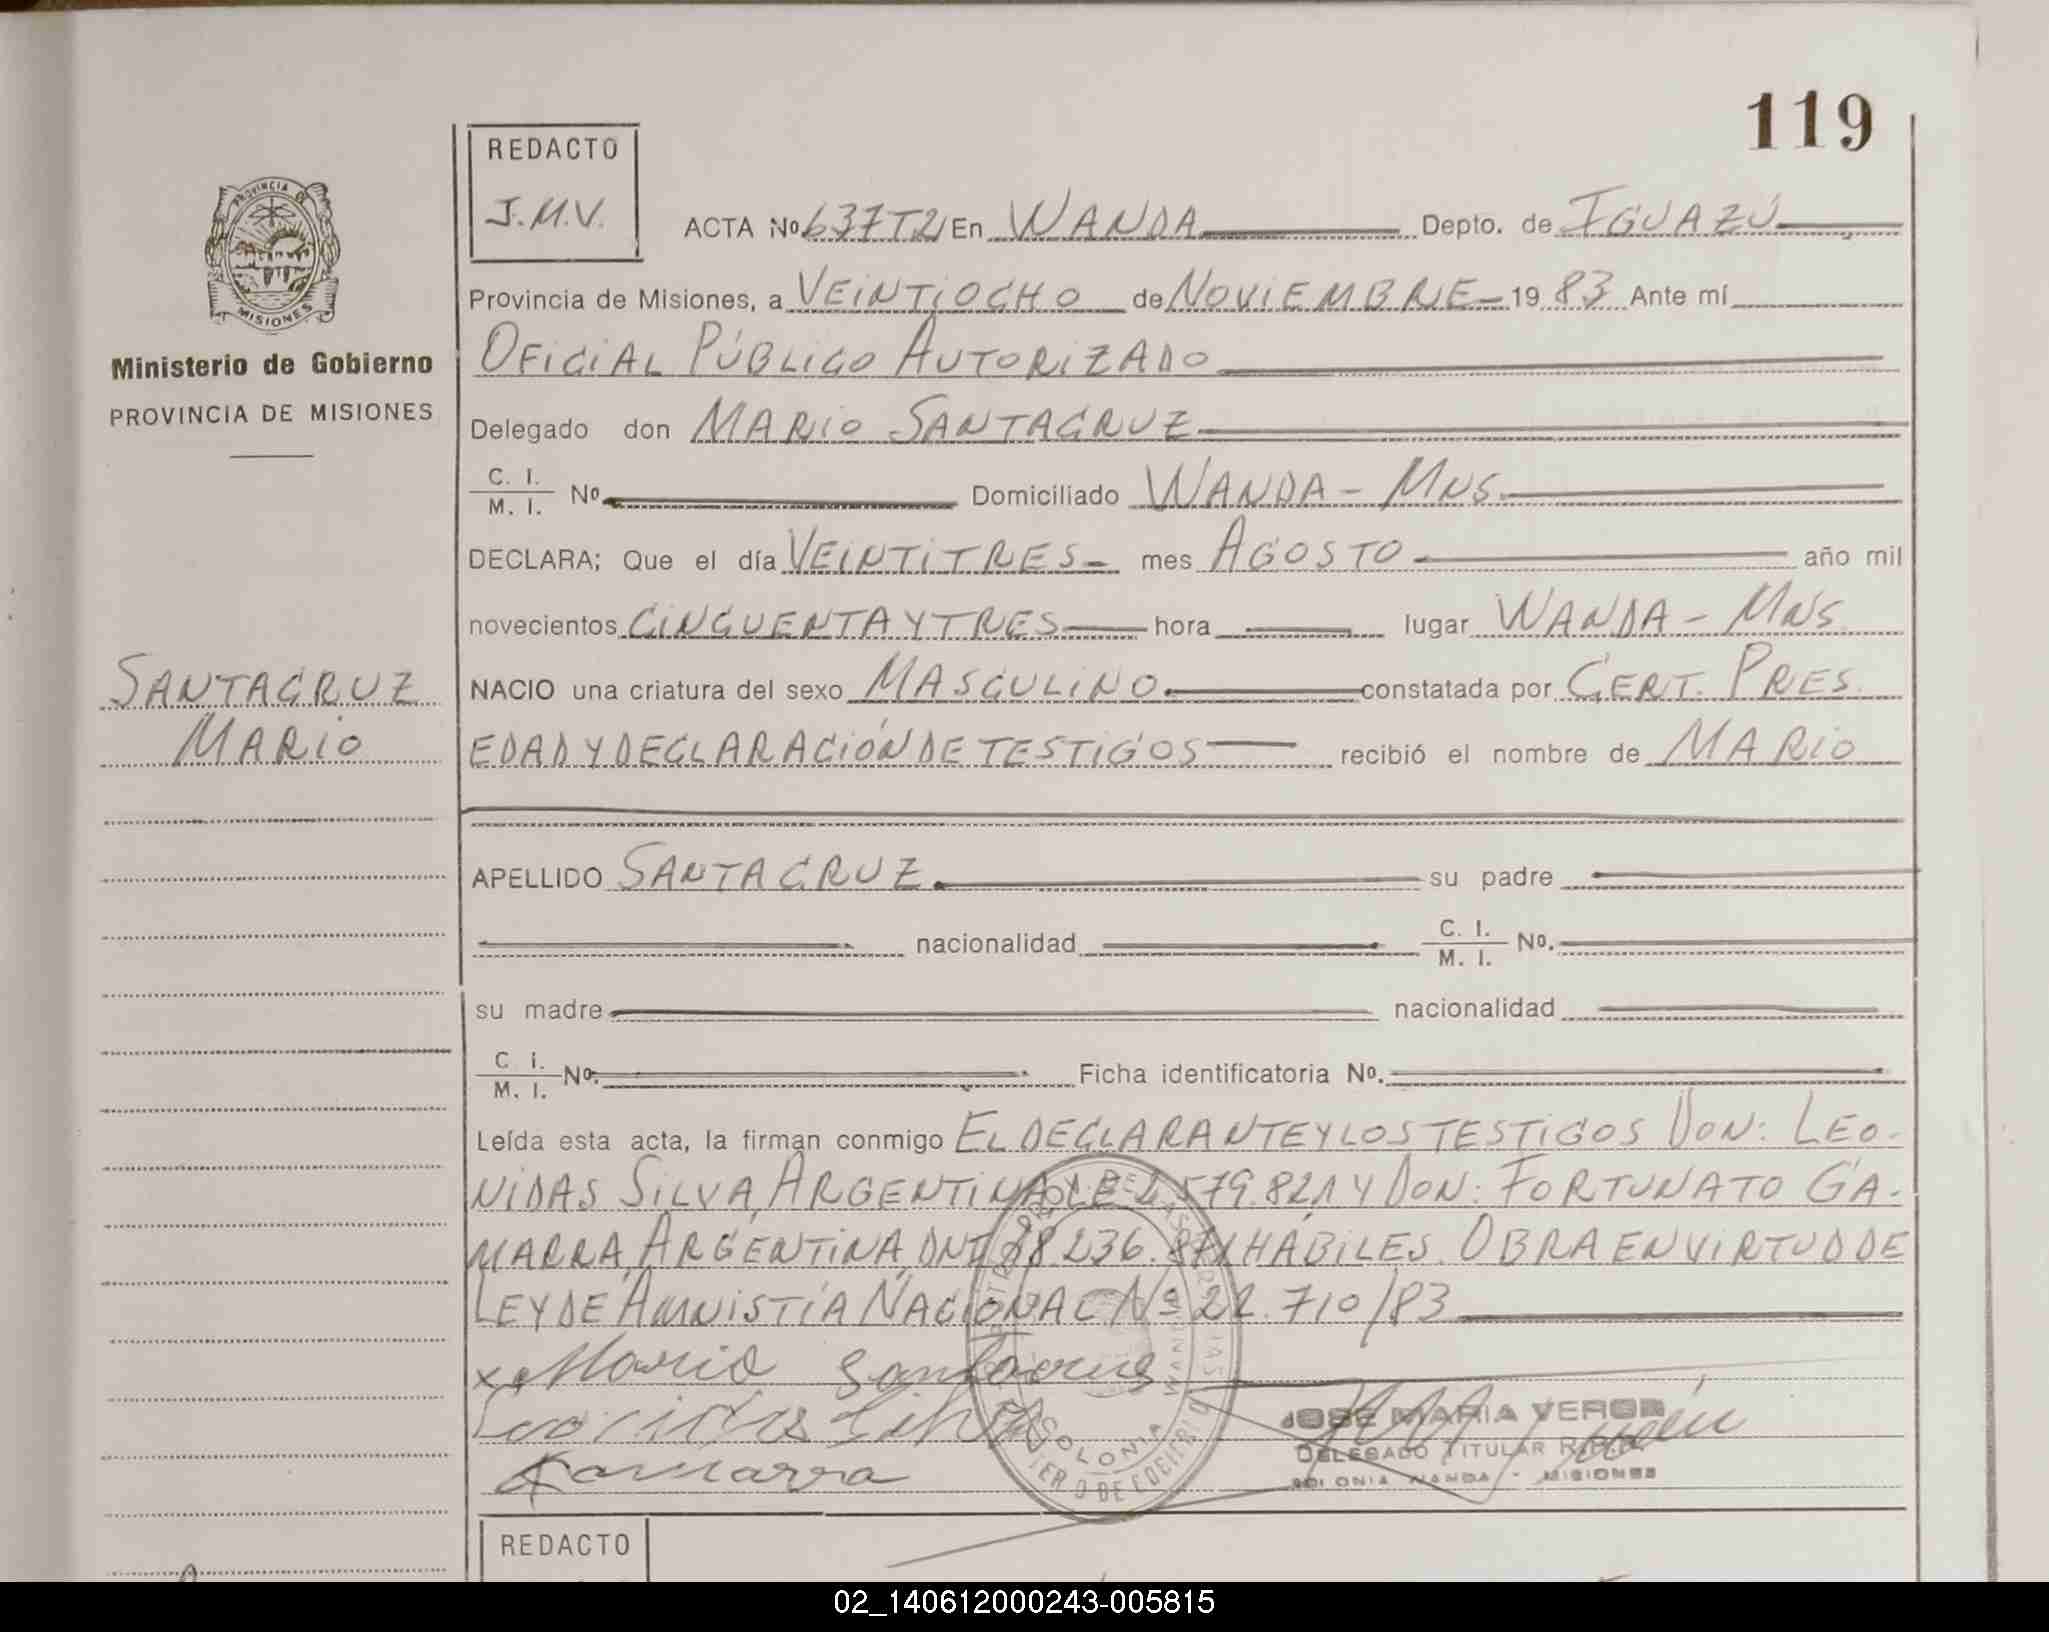 119
REDACTO
J.M.V.
ACTA Nº 637T2 En WANDA Depto. de IGUAZÚ
PROVINCIA DE
MISIONES
Provincia de Misiones, a VEINTIOCHO de NOVIEMBRE 19 83 Ante mí
Ministerio de Gobierno
PROVINCIA DE MISIONES
OFICIAL PÚBLICO AUTORIZADO
Delegado don MARIO SANTACRUZ
C. I.
M. I. Nº Domiciliado WANDA - MNS.
DECLARA; Que el día VEINTITRES mes AGOSTO año mil
novecientos CINCUENTA Y TRES hora lugar WANDA - MNS
SANTACRUZ
MARIO
NACIO una criatura del sexo MASCULINO constatada por CERT. PRES.
EDAD Y DECLARACIÓN DE TESTIGOS recibió el nombre de MARIO
APELLIDO SANTACRUZ su padre
nacionalidad C. I.
M. I. Nº.
su madre nacionalidad
C. I.
M. I. Nº. Ficha identificatoria Nº.
Leída esta acta, la firman conmigo EL DECLARANTE Y LOS TESTIGOS DON: LEO-
NIDAS SILVA, ARGENTINA LE Y DON: FORTUNATO GA-
MARRA, ARGENTINA, DNI HÁBILES. OBRA EN VIRTUD DE
LEY DE AMNISTÍA NACIONAL Nº 22.710/83
x Mario Santacruz
Leonidas Silva
Gamarra
COLONIA
WANDA
JOSE MARIA VERON
DELEGADO TITULAR
COLONIA WANDA - MISIONES
REDACTO
02_140612000243-005815